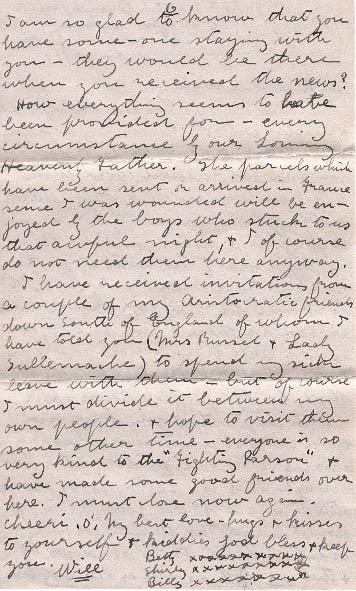 I am so glad to know that you
have some-one staying with
you - they would be there
when you received the news?
How everything seems to have
been provided for - every
circumstance by our Loving
Heavenly Father. The parcels which
have been sent or arrived in France
sence I was wounded will be en-
joyed by the boys who stuck to us
that awful night, & I of course
do not need them here anyway.
I have received invitations from
a couple of my Aristocratic friends
down South of England of whom I
have told you (Mrs Russel & Lady
Tullemache) to spend my sick
leave with them - but of course
I must divide it between my
own people. & hope to visit them
some other time - everyone is so
very kind to the "Fighting Parson" &
have made some good friends over
here. I must close now again.
cheeri.o. My best love - hugs & kisses
to yourself & kiddies God bless & keep
you. Will
Betty xxxxxxxxxx
Shirley xxxxxxxxxx
Billy xxxxxxxxxx